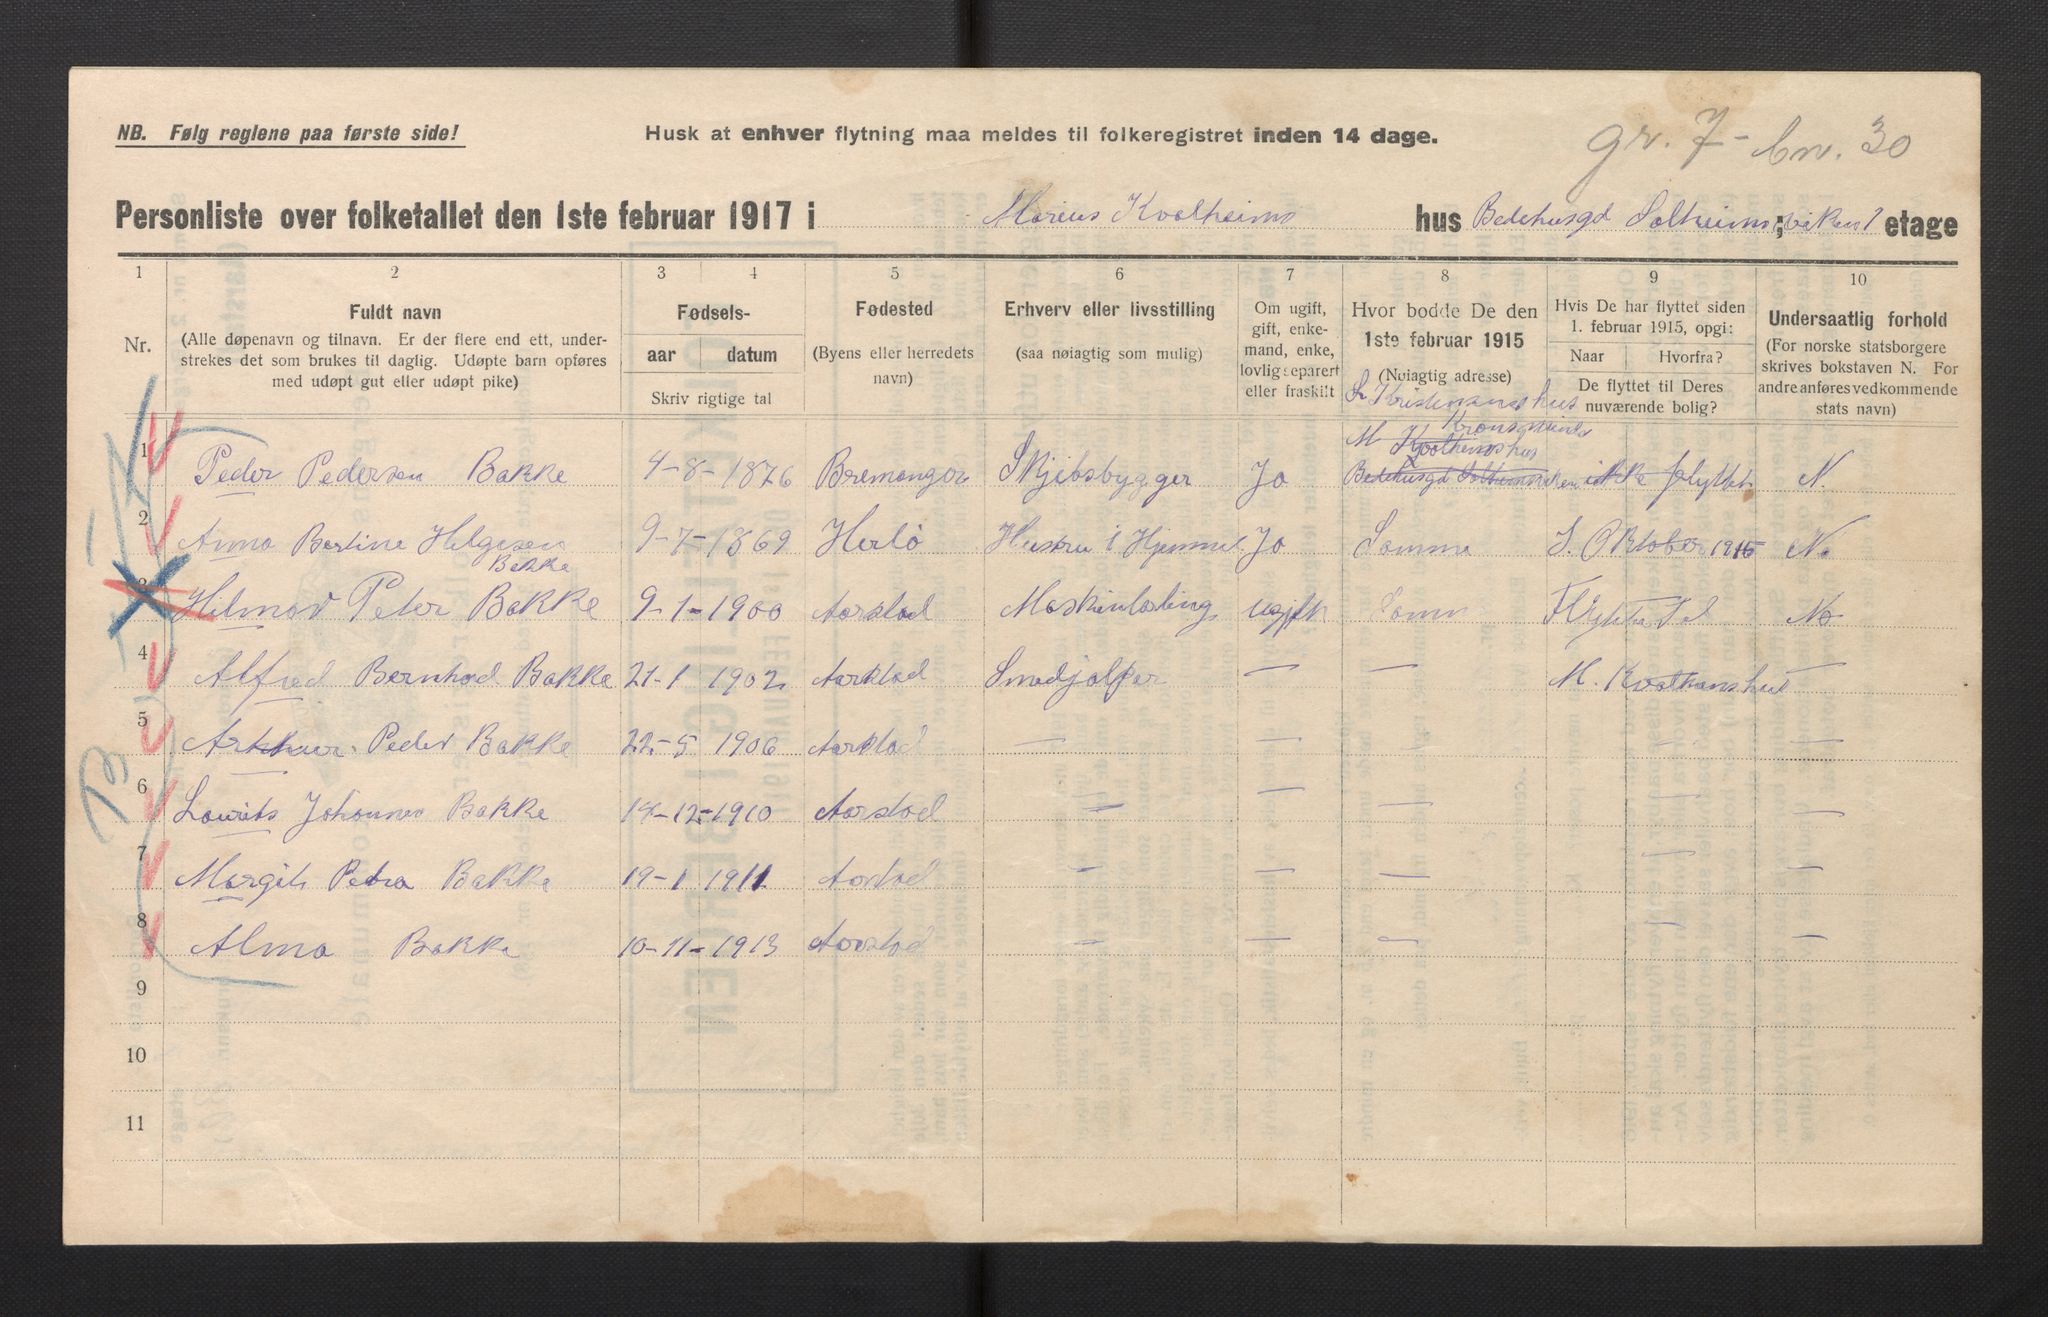 NB. Følg reglene paa første side!
Husk at enhver flytning maa meldes til folkeregistret inden 14 dage.
gr. 7 - bn. 30
Personliste over folketallet den 1ste februar 1917 i Marius Kvalheims hus Bedehusgd Solheimsviken 1 etage
1 2 3 4 5 6 7 8 9 10
Nr.
Fuldt navn
(Alle døpenavn og tilnavn. Er der flere end ett, under-
strekes det som brukes til daglig. Udøpte barn opføres
med udøpt gut eller udøpt pike)
Fødsels-
aar datum
Skriv rigtige tal
Fødested
(Byens eller herredets
navn)
Erhverv eller livsstilling
(saa nøiagtig som mulig)
Om ugift,
gift, enke-
mand, enke,
lovlig separert
eller fraskilt
Hvor bodde De den
1ste februar 1915
(Nøiagtig adresse)
Hvis De har flyttet siden
1. februar 1915, opgi:
Naar Hvorfra?
De flyttet til Deres
nuværende bolig?
Undersaatlig forhold
(For norske statsborgere
skrives bokstaven N. For
andre anføres vedkommende
stats navn)
Kristensens hus
M Kvalheims hus
1 Peder Pedersen Bakke 4-8-1876 Bremanger Skjibsbygger Jo Bedehusgd Solheimsviken ikke flyttet N.
2 Anna Bertine Helgesen Bakke 9-7-1869 Herlø Hustru i Hjemmet Jo Samme 1. Oktober 1915 N.
3 Hilmar Peter Bakke 9-1-1900 Aarstad Maskinlærling ugift Samme Flyttet Til N.
4 Alfred Bernhard Bakke 21-1 1902 Aarstad Smedjælper — — M. Kvalheims hus —
5 Arthur Peder Bakke 22-5 1906 Aarstad — — — — —
6 Laurits Johannes Bakke 14-12-1910 Aarstad — — — — —
7 Margit Petra Bakke 19-1 1911 Aarstad — — — — —
8 Alma Bakke 10-11-1913 Aarstad — — — — —
9
10
11
B